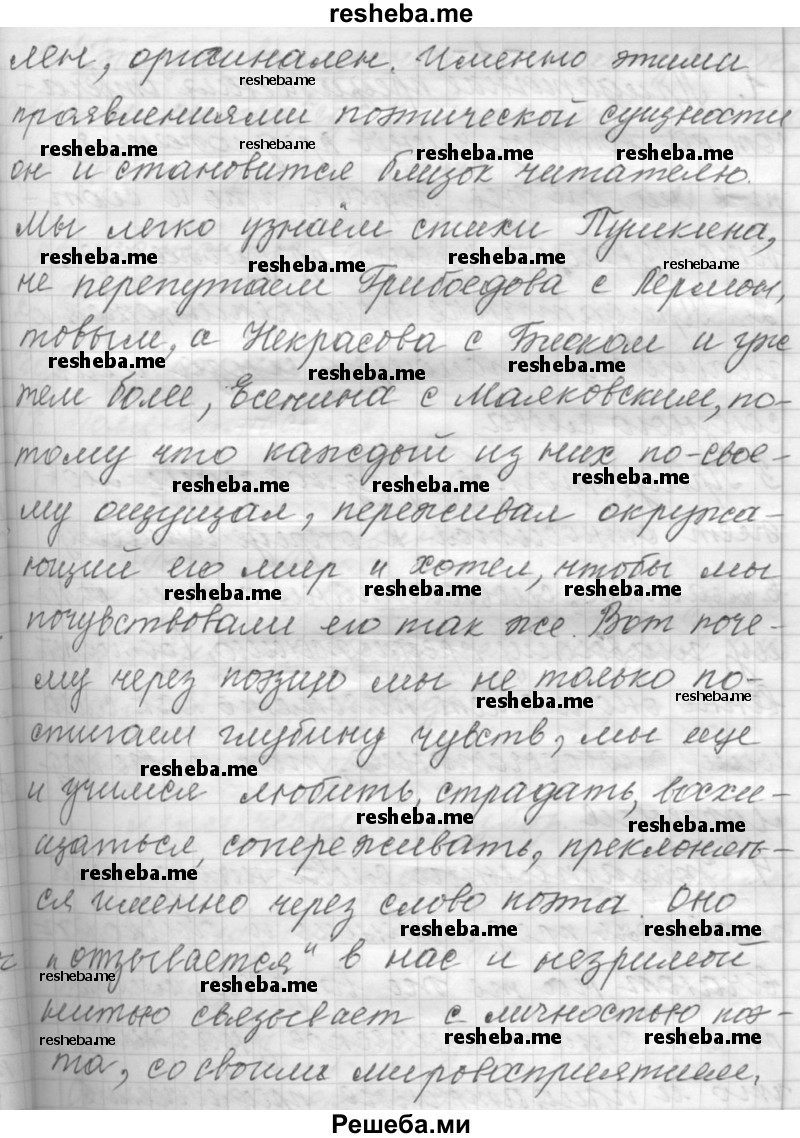 resheba.me
лен, оригинален. Именно этими
resheba.me
проявлениями поэтической сущности
resheba.me resheba.me resheba.me resheba.me
он и становится близок читателю.
Мы легко узнаём стихи Пушкина,
resheba.me resheba.me resheba.me resheba.me
не перепутаем Грибоедова с Лермон,
товым, а Некрасова с Блоком и уж
resheba.me resheba.me resheba.me
тем более, Есенина с Маяковским, по-
тому что каждый из них по-свое-
resheba.me resheba.me resheba.me
му ощущал, переживал окружа-
ющий его мир и хотел, чтобы мы
resheba.me resheba.me resheba.me
почувствовали его так же. Вот поче-
му через поэзию мы не только по-
resheba.me resheba.me
стигаем глубину чувств, мы еще
resheba.me
и учимся любить, страдать, восхи-
resheba.me resheba.me
щаться, сопереживать, преклонять-
resheba.me
ся именно через слово поэта. Оно
resheba.me resheba.me
„отзывается“ в нас и незримой
resheba.me resheba.me
нитью связывает с личностью поэ-
resheba.me resheba.me resheba.me
та, со своим мировосприятием,
Решеба.ми